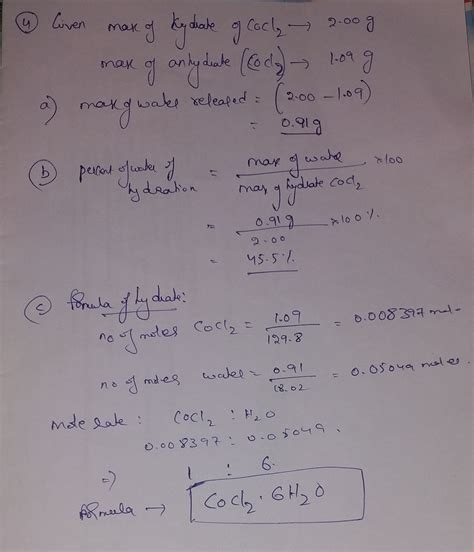 4) Given mass of hydrate of CoCl2 → 2.00 g
mass of anhydrate (CoCl2) → 1.09 g
a) mass of water released = (2.00 - 1.09)
= 0.91g
b) percent of water of hydration = mass of water / mass of hydrate CoCl2 × 100
= 0.91g / 2.00 × 100 %
= 45.5 %
c) formula of hydrate:
no of moles CoCl2 = 1.09 / 129.8 = 0.008397 mol
no of moles water = 0.91 / 18.02 = 0.05049 moles.
mole ratio : CoCl2 : H2O
0.008397 : 0.05049.
⇒ 1 : 6.
formula → CoCl2 · 6H2O